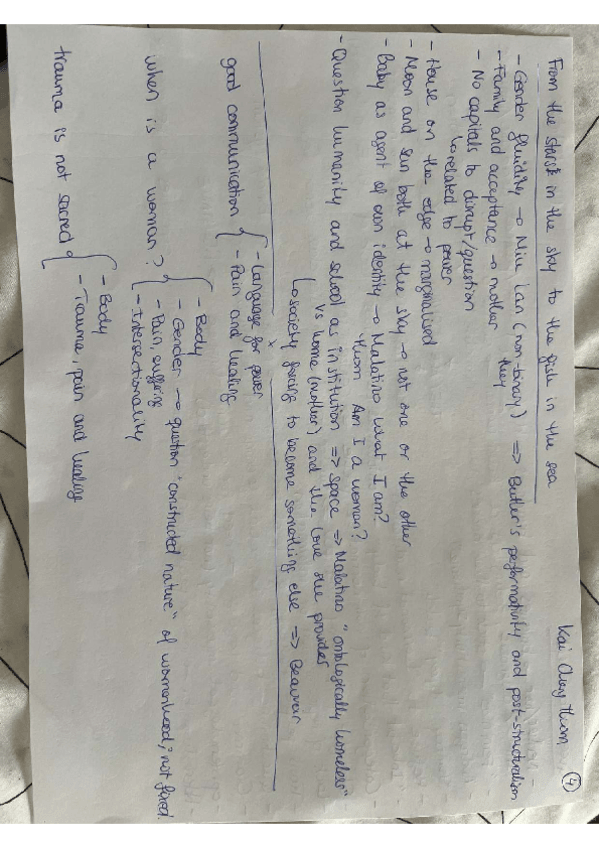 Kai Cheng Thom ④
From the stars in the sky to the fish in the sea
- Gender fluidity → Miu Lan (non-binary) ⇒ Butler's performativity and post-structuralism
they
- Family and acceptance → mother
- No capitals to disrupt/question
↳ related to power
- House on the edge → marginalised
- Moon and sun both at the sky → not one or the other
- Baby as agent of own identity → Malatino what I am?
Thom Am I a woman?
- Question humanity and school as institution ⇒ space ⇒ Malatino "ontologically homeless"
vs home (mother) and the love she provides
↳ society forcing to become something else ⇒ Beauvoir
x
good communication { - Language for power
- Pain and healing
when is a woman? { - Body
- Gender → question "constructed nature" of womanhood, not fixed.
- Pain, suffering
- Intersectionality
trauma is not sacred { - Body
- Trauma, pain and healing